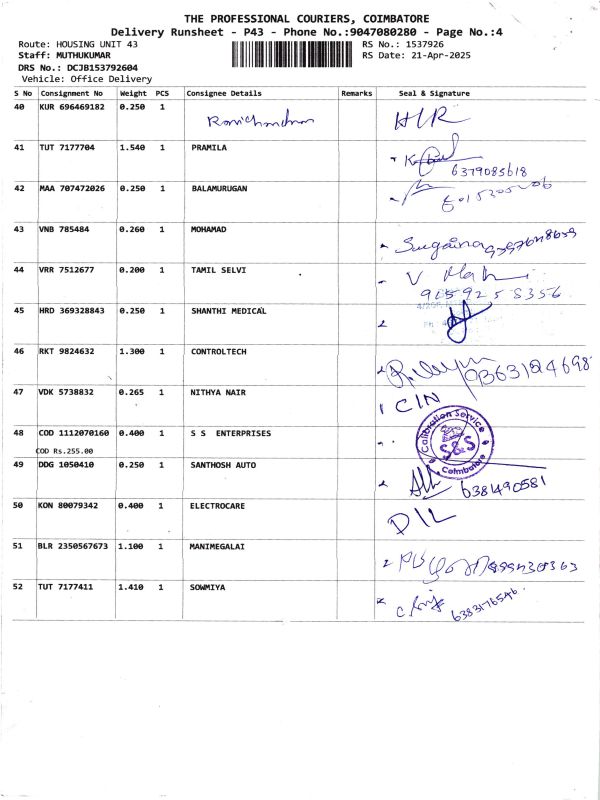 THE PROFESSIONAL COURIERS, COIMBATORE
Delivery Runsheet - P43 - Phone No.:9047080280 - Page No.:4
Route: HOUSING UNIT 43 RS No.: 1537926
Staff: MUTHUKUMAR RS Date: 21-Apr-2025
DRS No.: DCJB153792604
Vehicle: Office Delivery
S No Consignment No Weight PCS Consignee Details Remarks Seal & Signature
40 KUR 696469182 0.250 1 Ravichandran
41 TUT 7177704 1.540 1 PRAMILA
6379085618
42 MAA 707472026 0.250 1 BALAMURUGAN
43 VNB 785484 0.260 1 MOHAMAD Sugaina
44 VRR 7512677 0.200 1 TAMIL SELVI V
915925 8356
45 HRD 369328843 0.250 1 SHANTHI MEDICAL
46 RKT 9824632 1.300 1 CONTROLTECH
47 VDK 5738832 0.265 1 NITHYA NAIR CIN
48 COD 1112070160 0.400 1 S S ENTERPRISES Calibration Service S&S Coimbatore
COD Rs.255.00
49 DDG 1050410 0.250 1 SANTHOSH AUTO 6381490581
50 KON 80079342 0.400 1 ELECTROCARE DIL
51 BLR 2350567673 1.100 1 MANIMEGALAI
52 TUT 7177411 1.410 1 SOWMIYA
6383176546